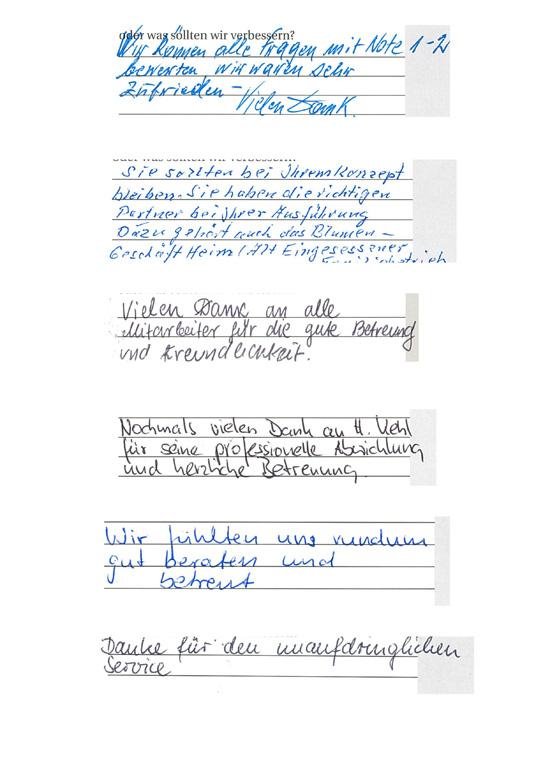 oder was sollten wir verbessern?
Wir können alle Fragen mit Note 1-2
bewerten, wir waren sehr
zufrieden -
Vielen Dank.
oder was sollten wir verbessern?
Sie sollten bei Ihrem Konzept
bleiben. Sie haben die richtigen
Partner bei Ihrer Ausführung
Dazu gehört auch das Blumen-
Geschäft Heim / Alt Eingesessener
Familienbetrieb
Vielen Dank an alle
Mitarbeiter für die gute Betreuung
und Freundlichkeit.
Nochmals vielen Dank an H. Kehl
für seine professionelle Abwicklung
und herzliche Betreuung.
Wir fühlten uns rundum
gut beraten und
betreut
Danke für den unaufdringlichen
Service